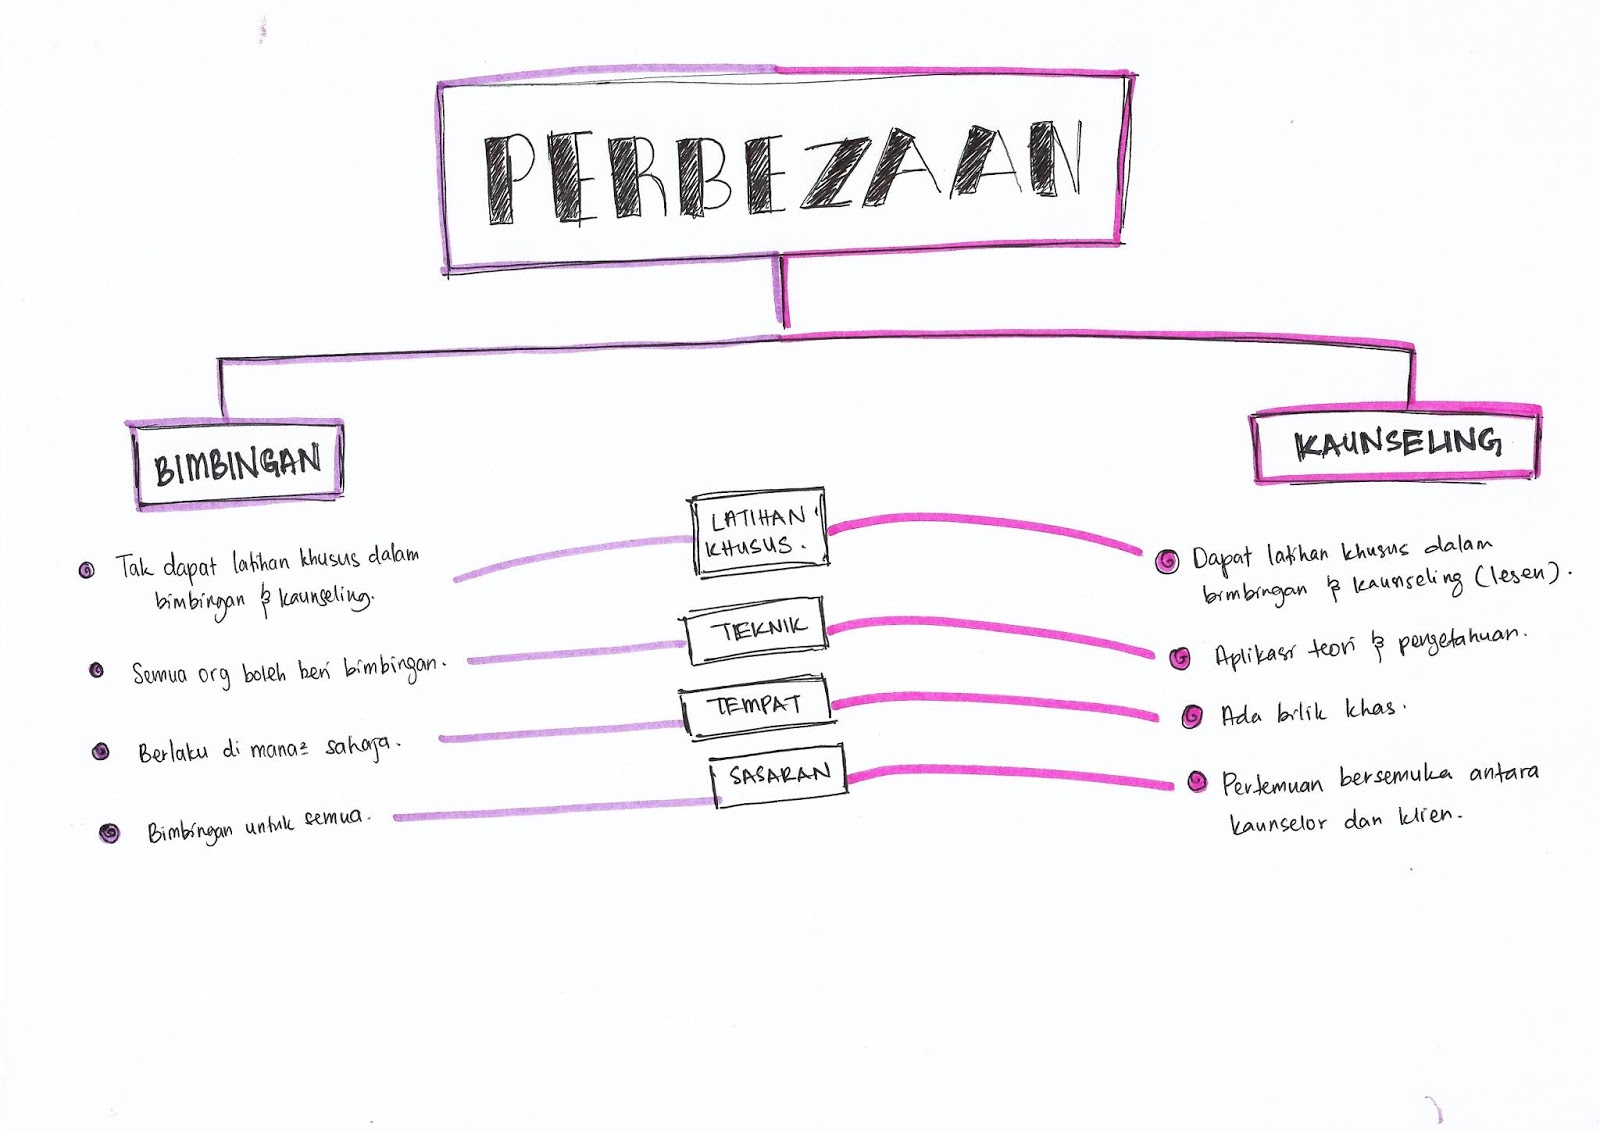 PERBEZAAN
BIMBINGAN
KAUNSELING
LATIHAN
KHUSUS.
Tak dapat latihan khusus dalam
bimbingan & kaunseling.
Dapat latihan khusus dalam
bimbingan & kaunseling (lesen).
TEKNIK
Semua org boleh beri bimbingan.
Aplikasi teori & pengetahuan.
TEMPAT
Berlaku di mana2 sahaja.
Ada bilik khas.
SASARAN
Bimbingan untuk semua.
Pertemuan bersemuka antara
kaunselor dan klien.